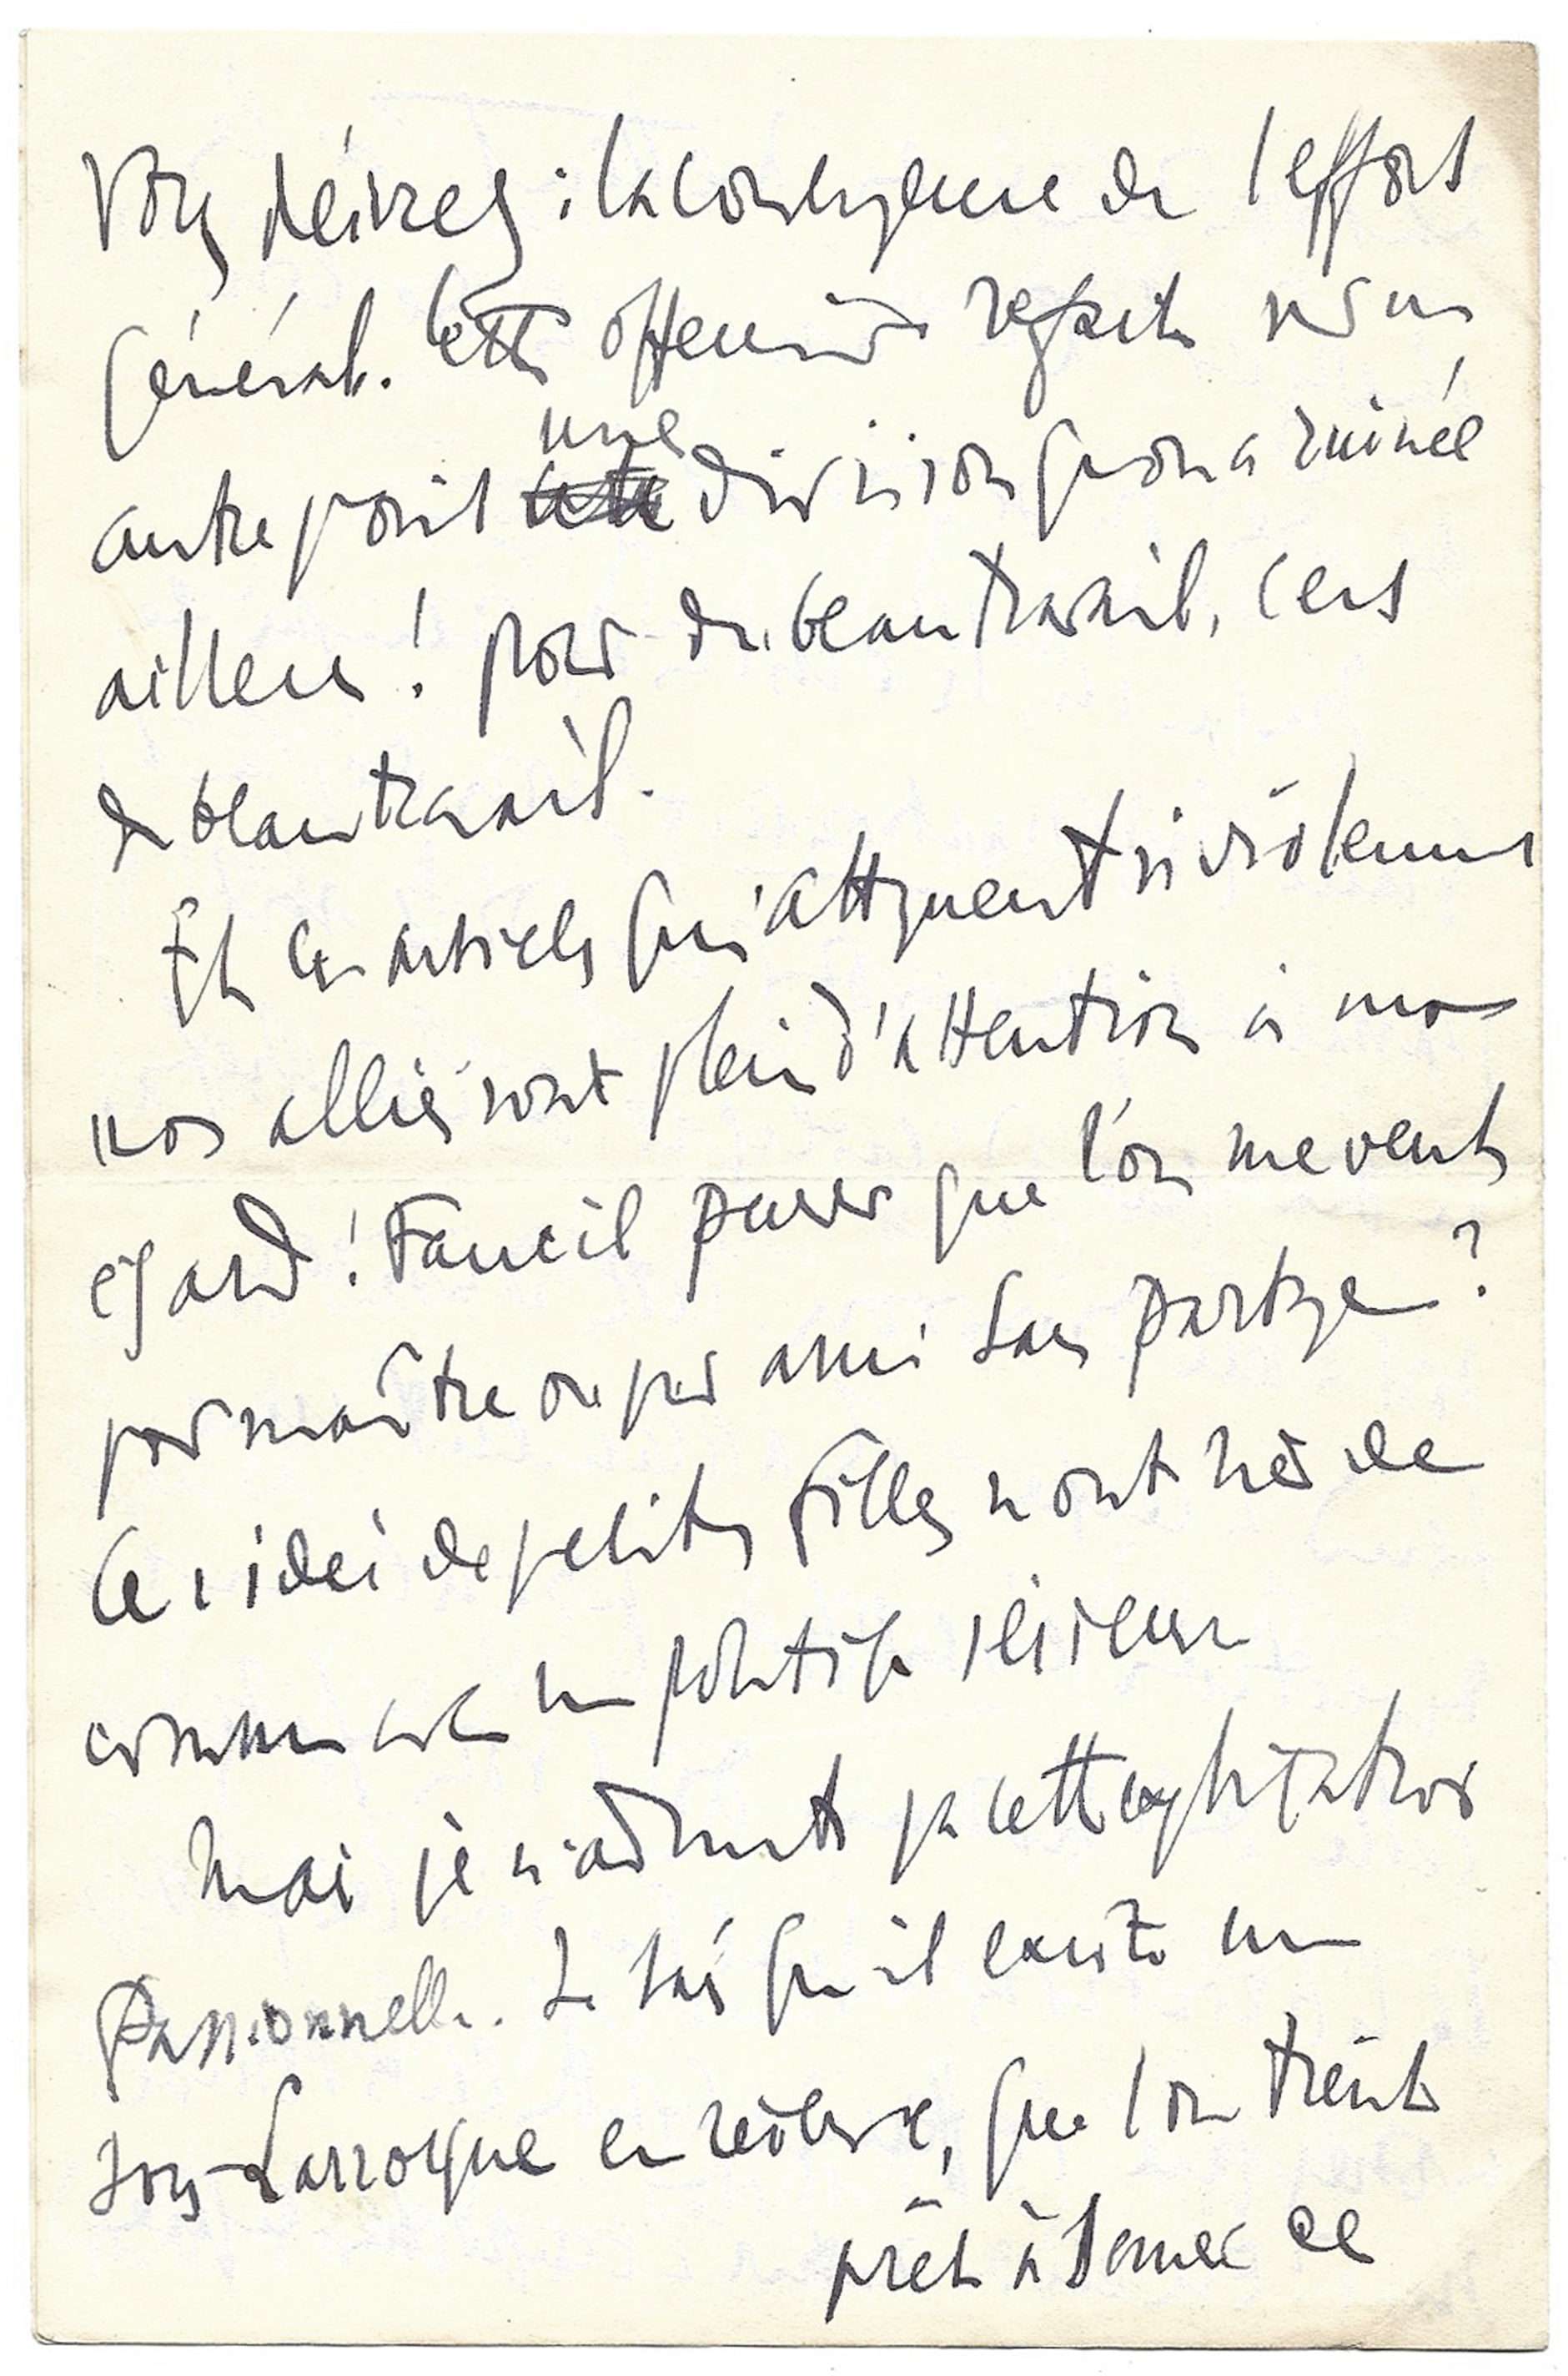 Vous désirez : la convergence de l'effort
général. Cette offensive refaite sur un
autre point une division qu'on a ruinée
ailleurs ! pour du beau travail, c'est
du beau travail.
Et ces articles qui attaquent si violemment
nos alliés sont pleins d'attention à mon
égard ! Faut-il penser que l'on me veut
pour maître ou pour ami sans partage ?
Ces idées de petites filles n'ont rien de
commun avec une politique sérieuse
Mais je n'admets pas cette explication
passionnelle. Je sais qu'il existe un
sous-Larroque en réserve, que l'on tient
prêt à donner